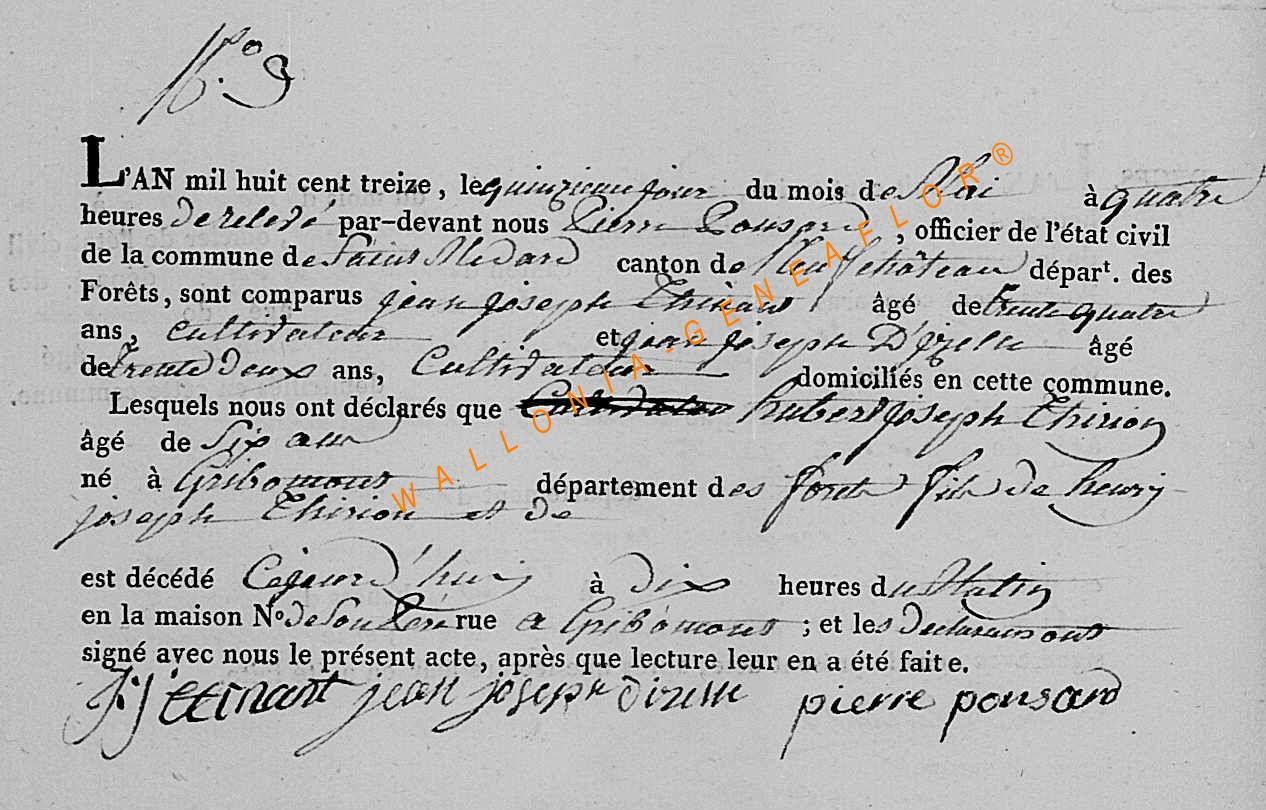 N.° 9
L'AN mil huit cent treize, le quinzieme jour du mois de Mai à quatre
heures de relevé par-devant nous Pierre Ponsard, officier de l'état civil
de la commune de Saint Medard canton de Neufchâteau dépar.t des
Forêts, sont comparus jean joseph âgé de trente quatre
ans, cultivateur et jean joseph D'izelle âgé
de trente deux ans, Cultivateur domiciliés en cette commune.
Lesquels nous ont déclarés que hubert joseph Thirion
âgé de Six ans
né à Gribomont département des forets fils de henry
joseph Thirion et de
est décédé Cejourd'hui à dix heures du Matin
en la maison N.o de Son Pere rue a Gribomont ; et les Declarans ont
signé avec nous le présent acte, après que lecture leur en a été faite.
jean joseph pierre ponsard
WALLONIA-GENEAFLOR®